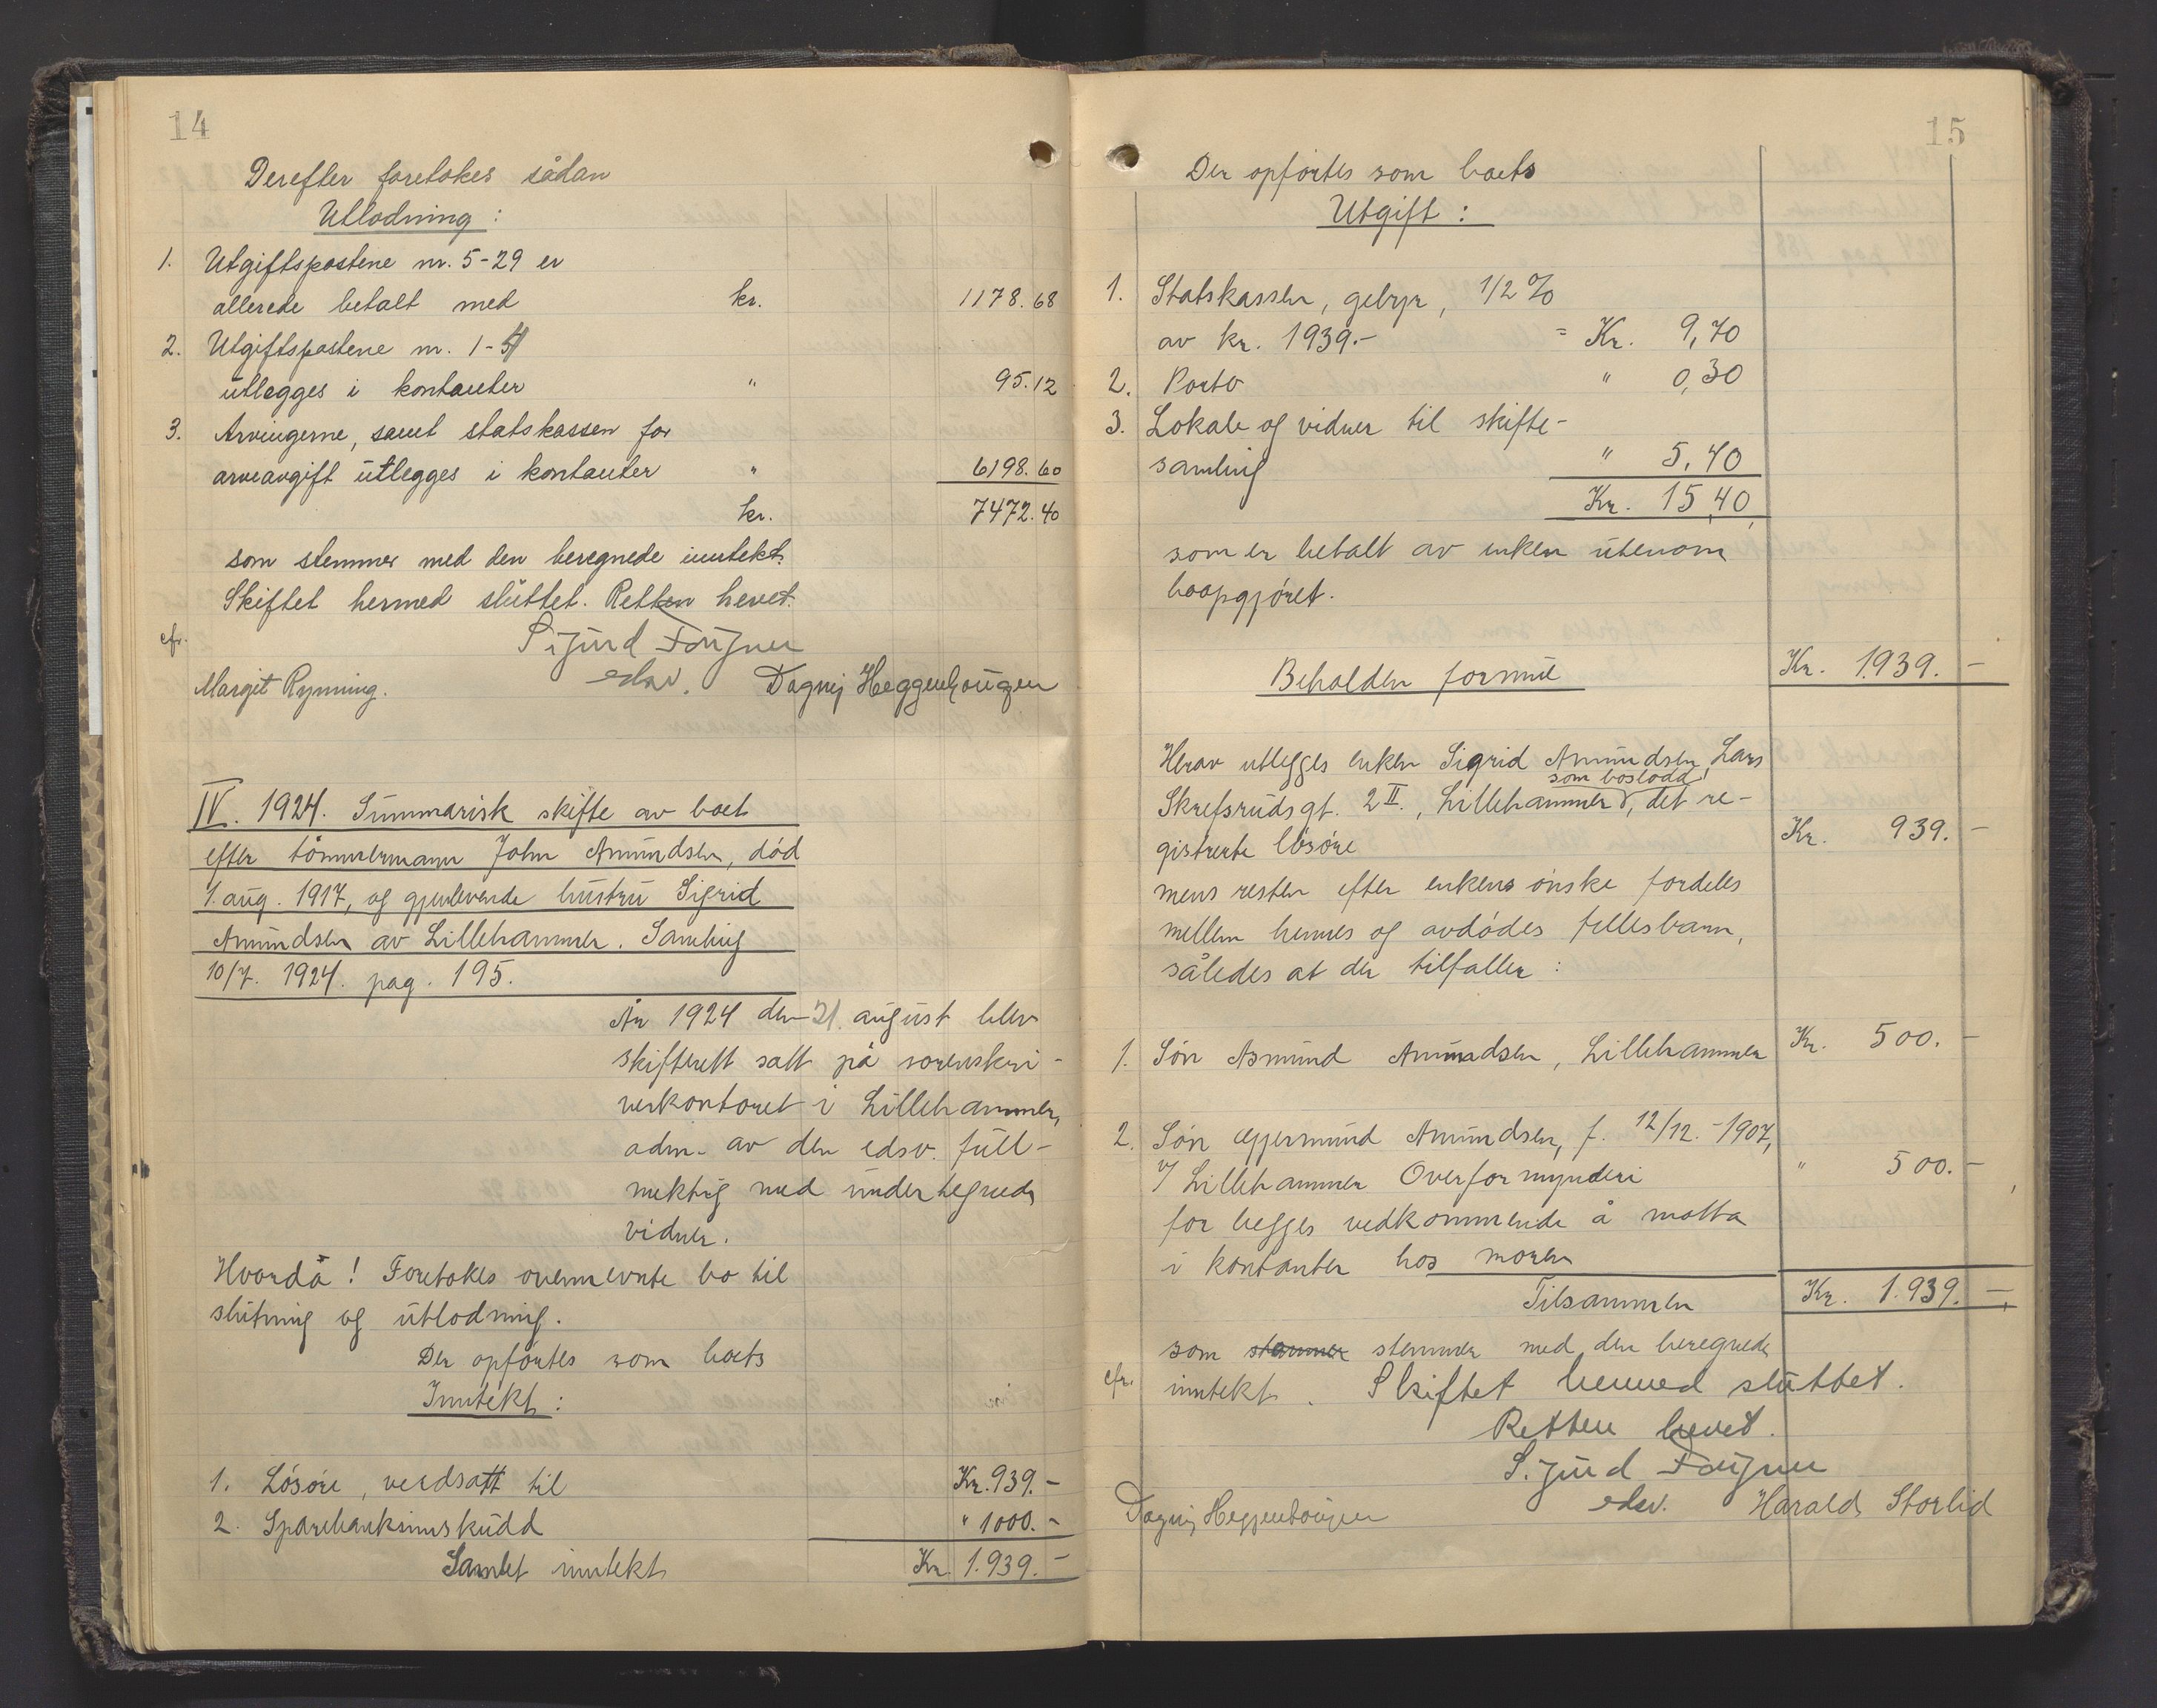 14
Derefter foretokes sådan
Utlodning :
1. Utgiftspostene nr. 5-29 er
allerede betalt med kr. 1178.68
2. Utgiftspostene nr. 1-4
utlegges i kontanter " 95.12
3. Arvingerne, samt statskassen for
arveavgift utlegges i kontanter " 6198.60
kr. 7472.40
som stemmer med den beregnede inntekt.
Skiftet hermed sluttet. Retten hevet.
cfr. Sigurd
Margit Rynning. edsv. Dagny Heggenhougen
IV. 1924. Summarisk skifte av boet
efter tömmermann John Amundsen, död
1. aug. 1917, og gjenlevende hustru Sigrid
Amundsen av Lillehammer. Samling
10/7. 1924. pag. 195.
År 1924 den 21. august blev
skifterett satt på sorenskri-
verkontoret i Lillehammer,
adm. av den edsv. full-
mektig med undertegnede
vidner.
Hvorda! Foretokes ovennevnte bo til
slutning og utlodning.
Der opförtes som boets
Inntekt :
1. Lösöre, verdsatt til Kr. 939.-
2. Sparebankinnskudd " 1000.-
Samlet inntekt Kr. 1.939.-
15
Der opförtes som boets
Utgift :
1. Statskassen, gebyr, 1/2 %
av kr. 1939.- = Kr. 9,70
2. Porto " 0,30
3. Lokale og vidner til skifte-
samling " 5,40
Kr. 15,40,
som er betalt av enken utenom
boopgjöret.
Beholden formue Kr. 1939.-
Herav utlegges enken Sigrid Amundsen, Lars
som boslodd
Skrefsrudsgt. 2 II., Lillehammer, det re-
gistrerte lösöre Kr. 939.-
mens resten efter enkens önske fordeles
mellem hennes og avdödes fellesbarn,
således at der tilfaller :
1. Sön Asmund Amundsen, Lillehammer Kr. 500.-
2. Sön Gjermund Amundsen, f. 12/12.-1907,
v/ Lillehammer Overformynderi " 500.-
for begges vedkommende å motta
i kontanter hos moren
Tilsammen Kr. 1.939.-,
som stammer stemmer med den beregnede
cfr. inntekt. Skiftet hermed sluttet.
Retten hevet.
Sigurd
Dagny Heggenhougen edsv. Harald Storlid